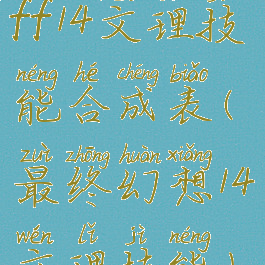 ff14文理技
néng hé chéng biǎo
能合成表(
zuì zhōng huàn xiǎng
最终幻想14
wén lǐ jì néng
文理技能)